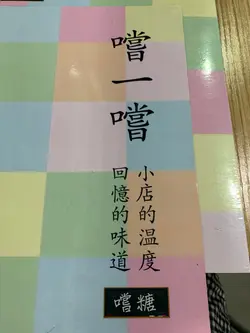 嚐一嚐
小店的溫度
回憶的味道
嚐糖